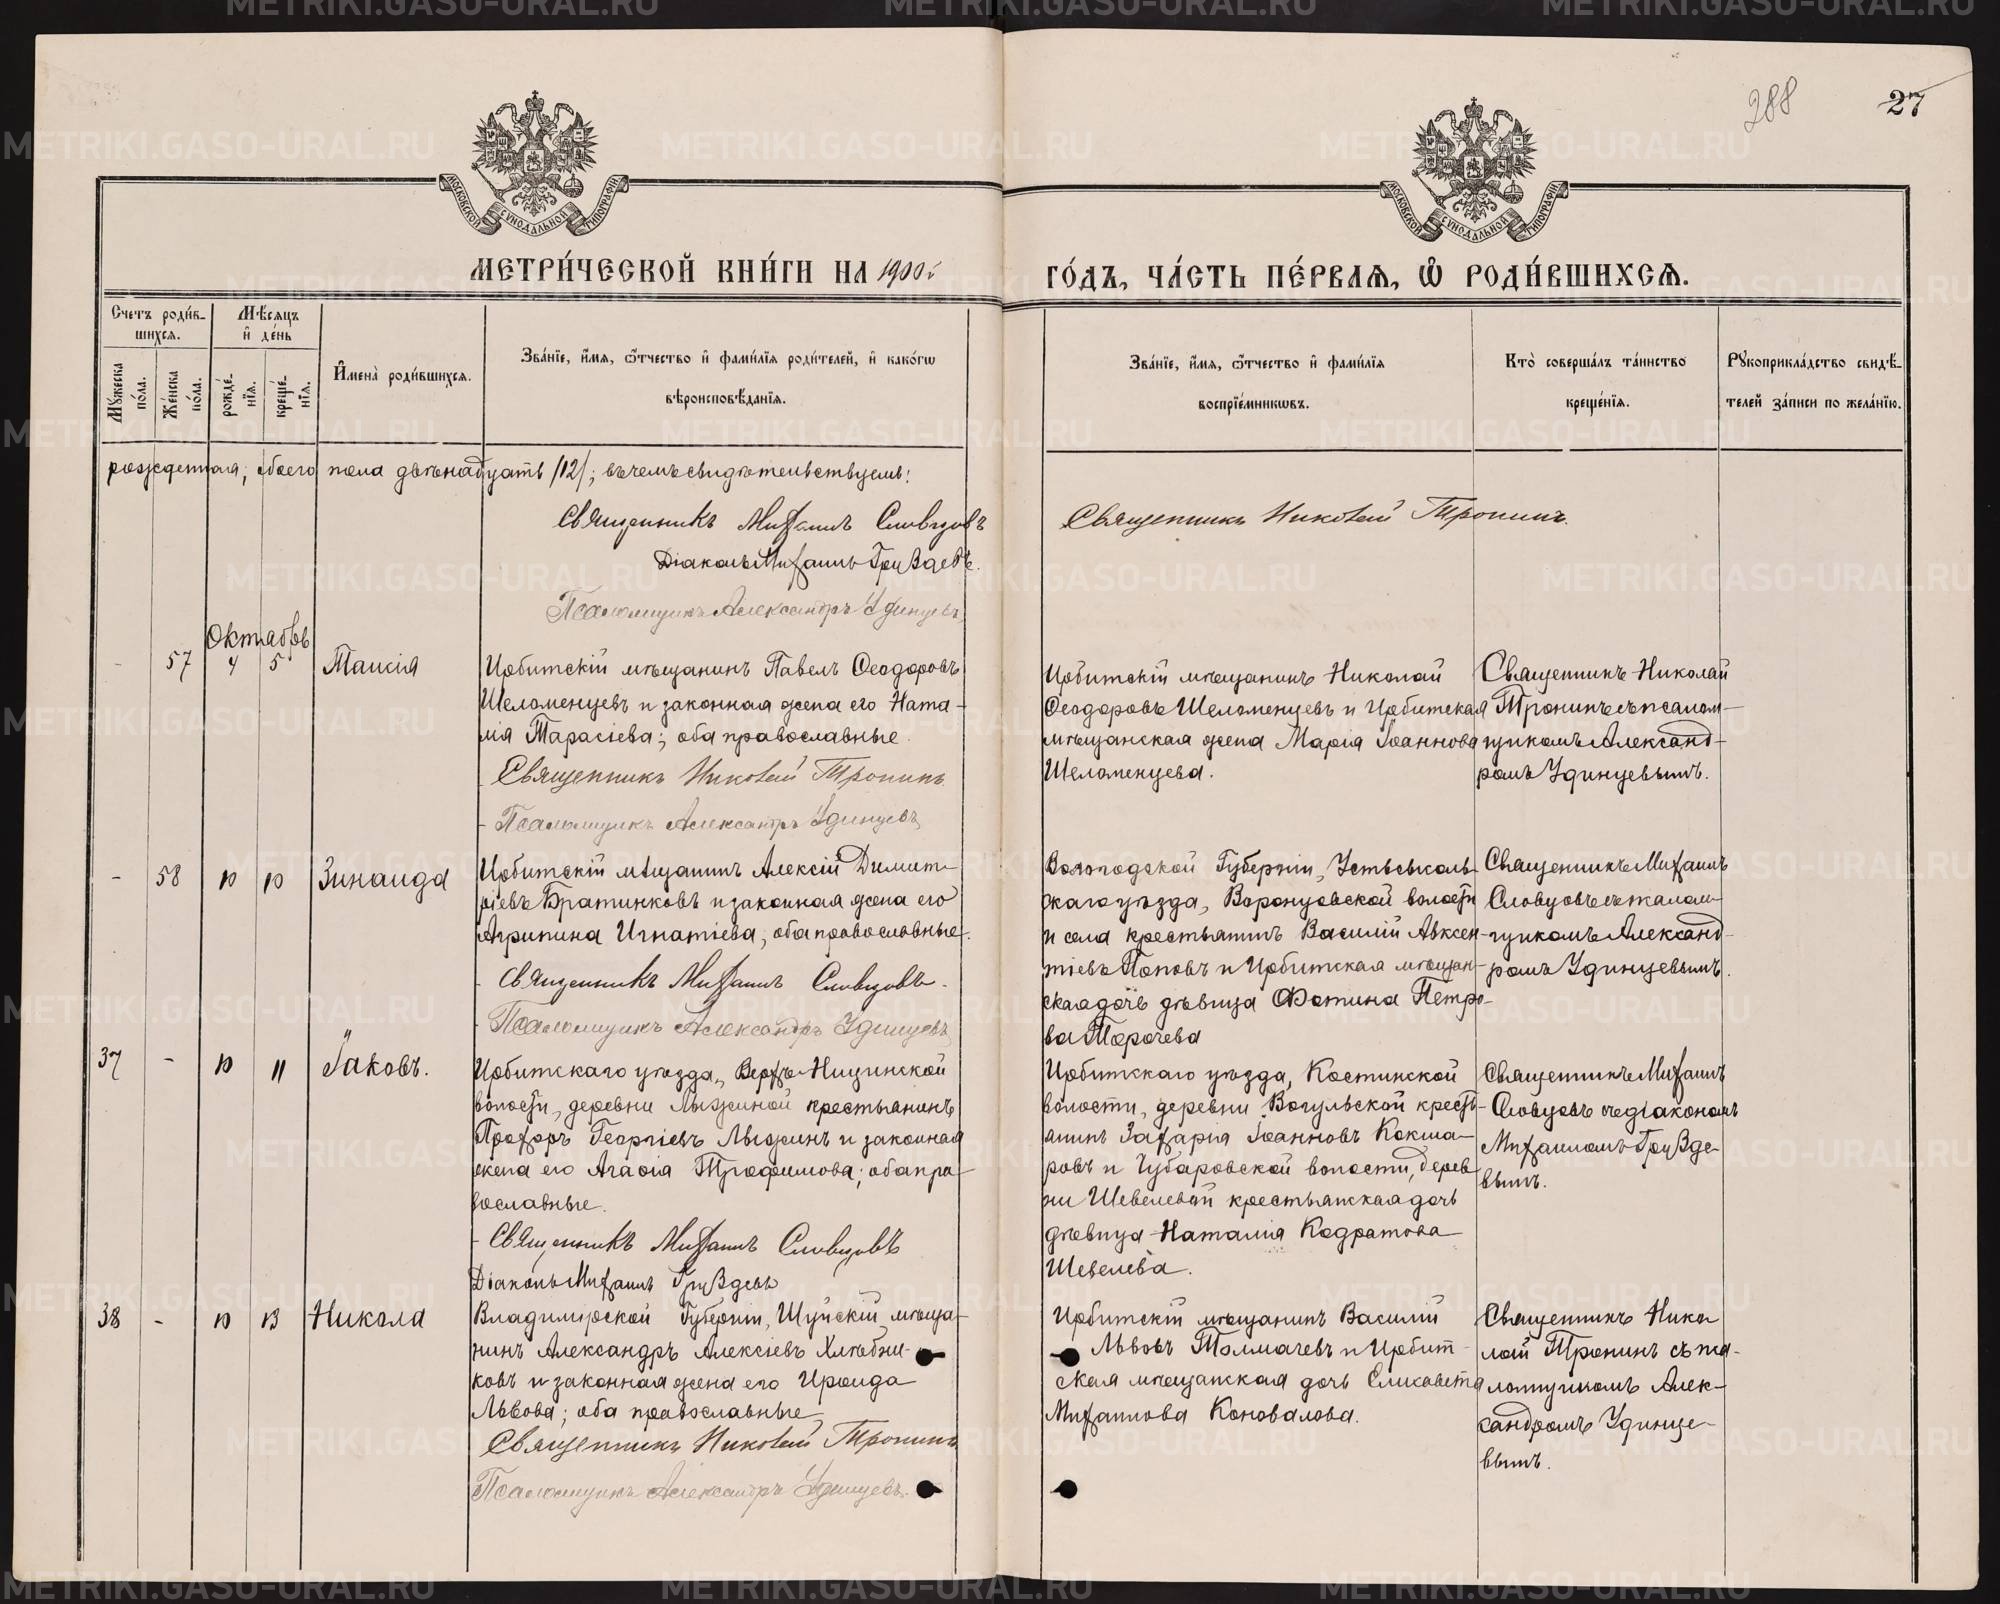 288 27
МОСКОВСКОЙ СѴНОДАЛЬНОЙ ТИПОГРАФІИ.
МОСКОВСКОЙ СѴНОДАЛЬНОЙ ТИПОГРАФІИ.
МЕТРИ́ЧЕСКОЙ КНИ́ГИ НА 1900й
ГО́ДЪ, ЧА́СТЬ ПЕ́РВАЯ, Ѿ РОДИ́ВШИХСЯ.
Счетъ роди́в-
шихся.
Мѣ́сяцъ
и де́нь
Му́жеска
по́ла.
Же́нска
по́ла.
рожде́-
нїя.
креще́-
нїя.
И҆мена̀ роди́вшихся.
Зва́нїе, и҆́мя, ѻ҆́тчество и҆ фами́лїя роди́телей, и҆ како́гѡ
вѣроисповѣ́данїя.
Зва́нїе, и҆́мя, ѻ҆́тчество и҆ фами́лїя
воспрїе́мникѡвъ.
Кто̀ соверша́лъ та́инство
креще́нїя.
Рꙋкоприкла́дство свидѣ́-
телей за́писи по жела́нїю.
рожденная; обоего пола двѣнадцать /12/; въ чемъ свидѣтельствуемъ:
Священникъ Михаилъ Словцовъ
Діаконъ Михаилъ
Псаломщикъ Александръ Удинцевъ
Священникъ Николай Тронинъ.
Октябрь
- 57 4 5 Таисія
Ирбитскій мѣщанинъ Павелъ Ѳеодоровъ
Шеломенцевъ и законная жена его Ната-
лія Тарасіева; оба православные.
Священникъ Николай Тронинъ
Псаломщикъ Александръ Удинцевъ
Ирбитскій мѣщанинъ Николай
Ѳеодоровъ Шеломенцевъ и Ирбитская
мѣщанская жена Марія Іоаннова
Шеломенцева.
Священникъ Николай
Тронинъ съ псалом-
щикомъ Александ-
ромъ Удинцевымъ.
- 58 10 10 Зинаида
Ирбитскій мѣщанинъ Алексій Димит-
ріевъ Братинковъ и законная жена его
Агрипина Игнатіева; оба православные.
Священникъ Михаилъ Словцовъ.
Псаломщикъ Александръ Удинцевъ
Вологодской Губерніи, Устьсысоль-
скаго уѣзда, Воронцовской волости
и села крестьянинъ Василій Авксен-
тіевъ Поповъ и Ирбитская мѣщан-
ская дочь дѣвица Фотина Петро-
ва
Священникъ Михаилъ
Словцовъ съ псалом-
щикомъ Александ-
ромъ Удинцевымъ.
37 - 10 11 Іаковъ.
Ирбитскаго уѣзда, Верхъ-Ницинской
волости, деревни Лыжиной крестьянинъ
Прохоръ Георгіевъ Лыжинъ и законная
жена его Агафія Трофимова; оба пра-
вославные.
Священникъ Михаилъ Словцовъ
Діаконъ Михаилъ
Ирбитскаго уѣзда, Костинской
волости, деревни Вогульской кресть-
янинъ Захарія Іоанновъ Кокша-
ровъ и Чубаровской волости, дерев-
ни Шевелевой крестьянская дочь
дѣвица Наталія Кодратова
Шевелева.
Священникъ Михаилъ
Словцовъ съ діакономъ
Михаиломъ
вымъ.
38 - 10 13 Никола
Владимірской Губерніи, Шуйскій мѣща-
нинъ Александръ Алексіевъ Хлѣбни-
ковъ и законная жена его Ироида
Львова; оба православные
Священникъ Николай Тронинъ
Псаломщикъ Александръ Удинцевъ.
Ирбитскій мѣщанинъ Василій
Львовъ Толмачевъ и Ирбит-
ская мѣщанская дочь Елисавета
Михаилова Коновалова.
Священникъ Нико-
лай Тронинъ съ пса-
ломщикомъ Алек-
сандромъ Удинце-
вымъ.
METRIKI.GASO-URAL.RU